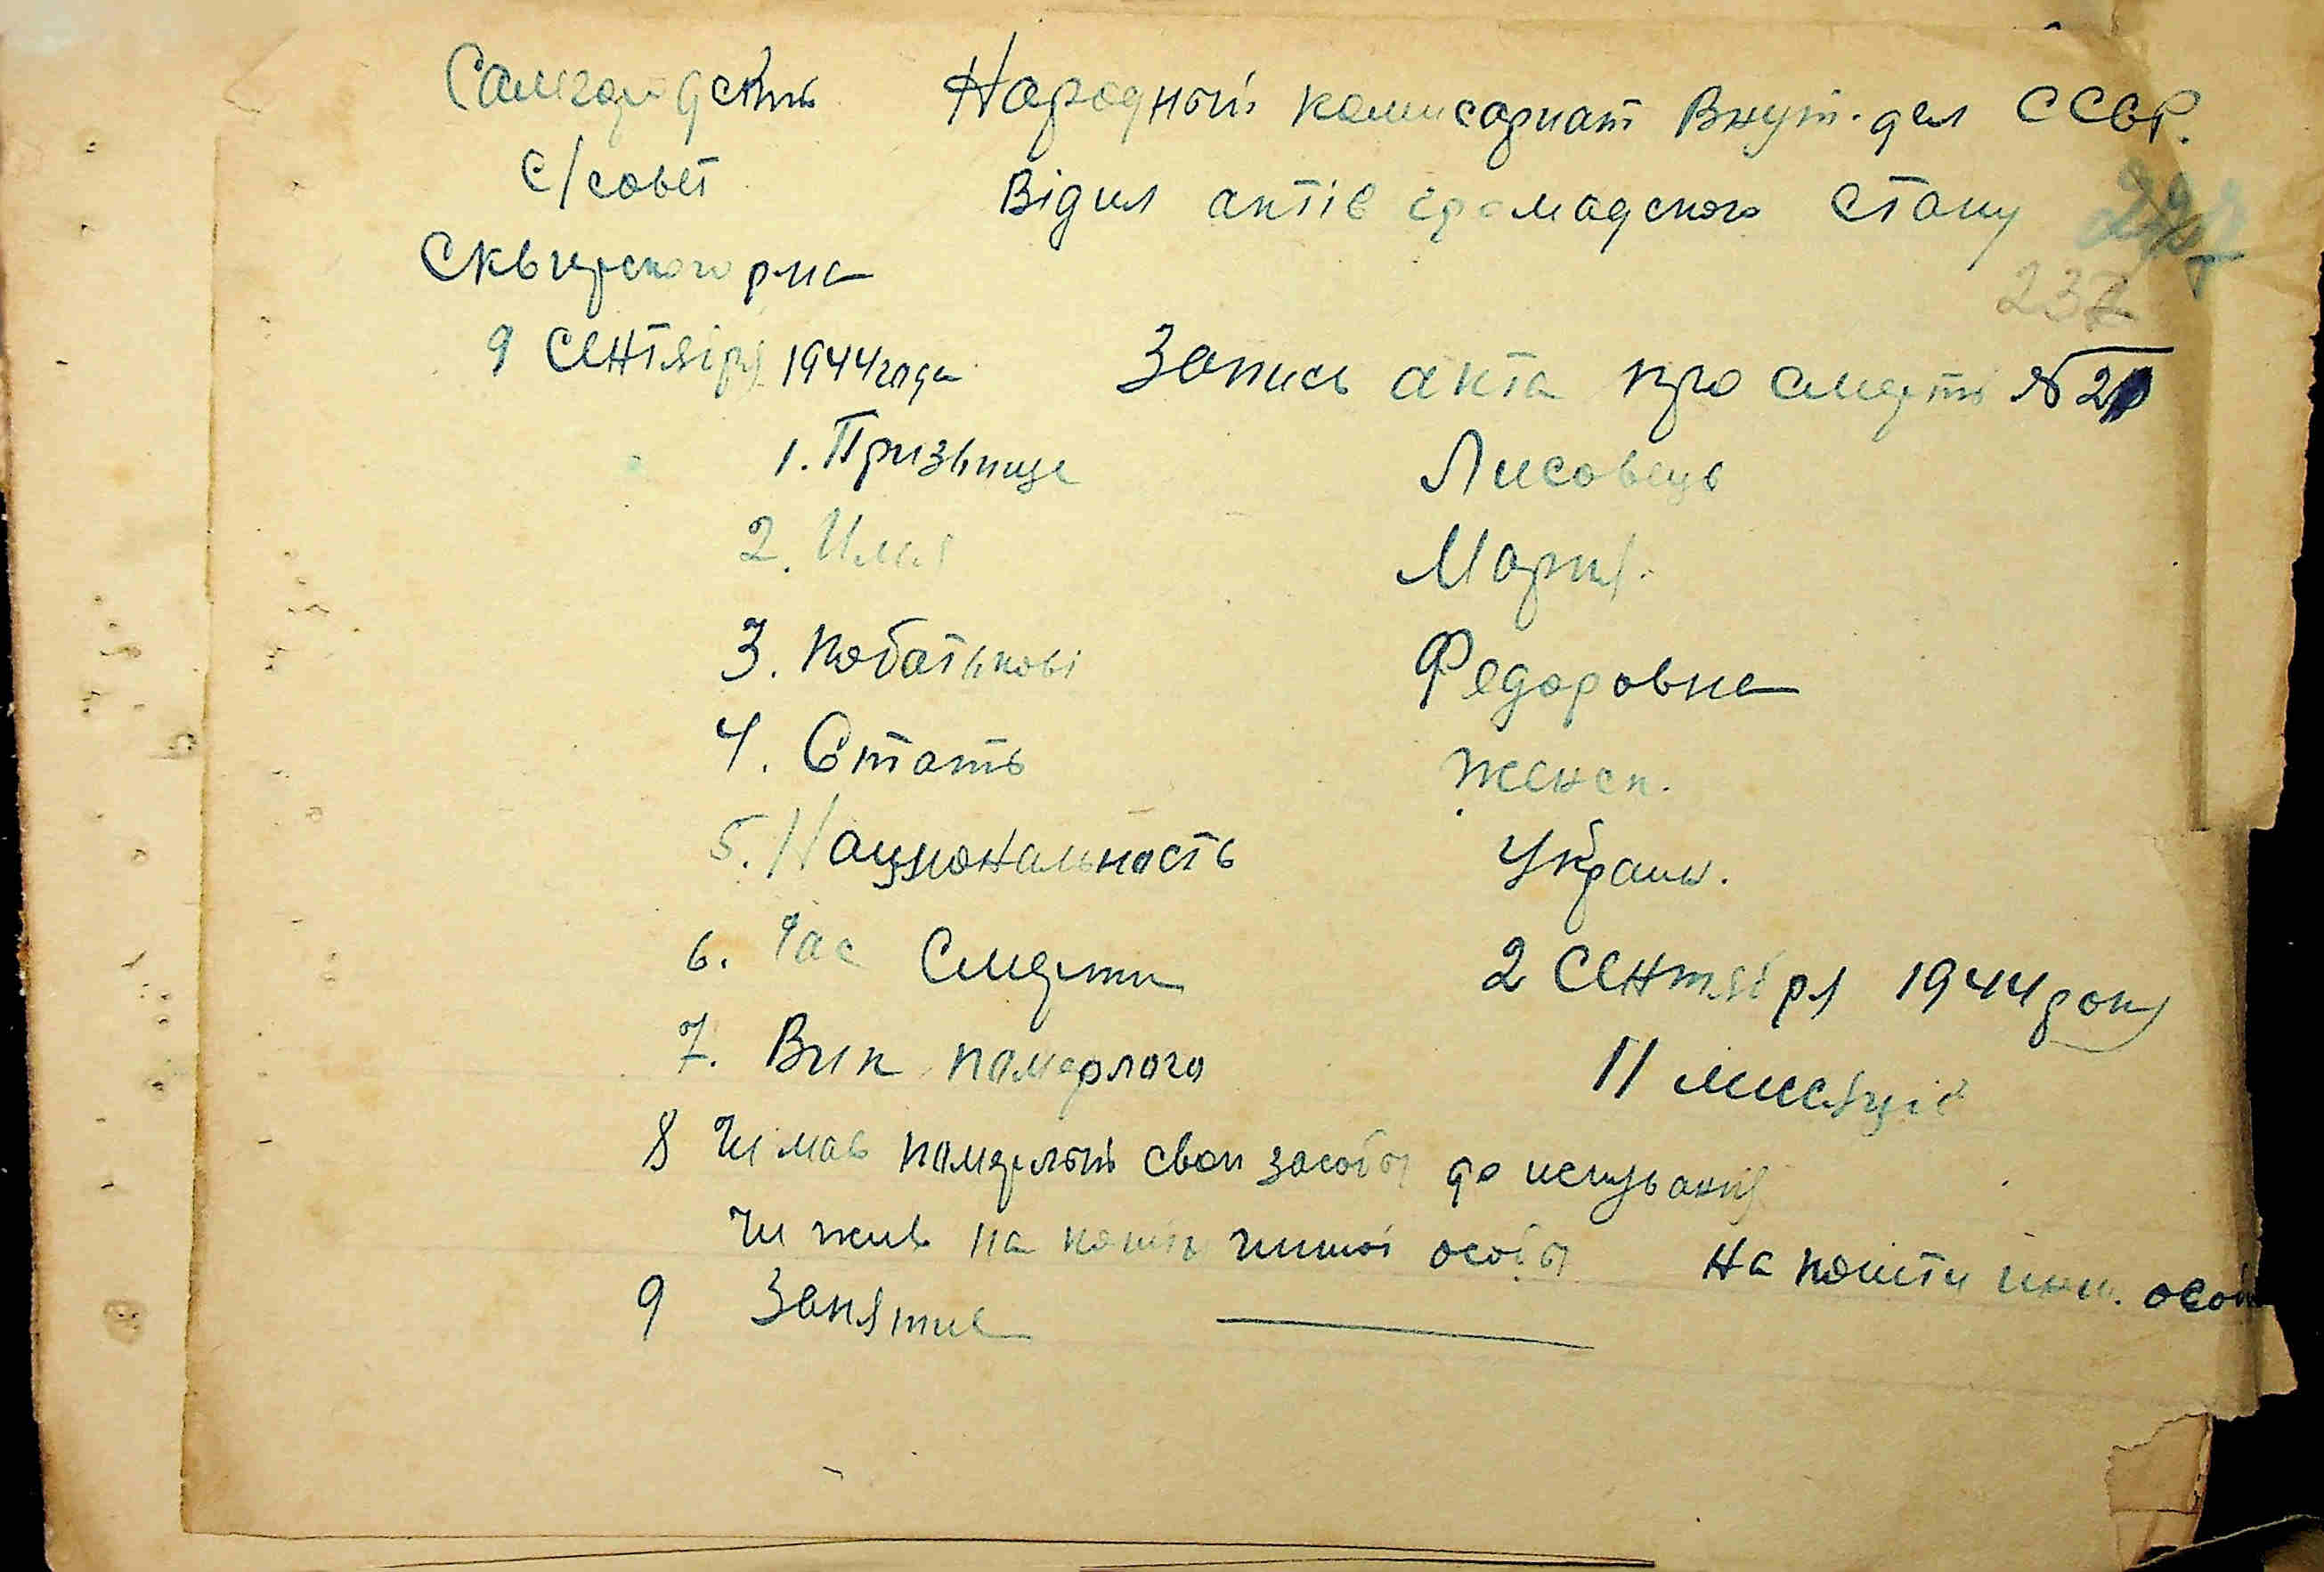 Самгородский Народный комисариат Внут. дел СССР.
с/совет Відил актів громадского стану
Сквирского р-на
232
9 Сентября 1944 года Запись акта про смерть №
1. Призвище Лисовець
2. Имя Мария.
3. Побатькові Федоровна
4. Стать Женск.
5. Национальность Украин.
6. Час Смерти 2 Сентября 1944 року
7. Вик померлого 11 мисяців
8 Чи мав померлый свои засобы до иснування
Чи жив на кошты иншоі особы На кошти инш. особ
9 Занятие